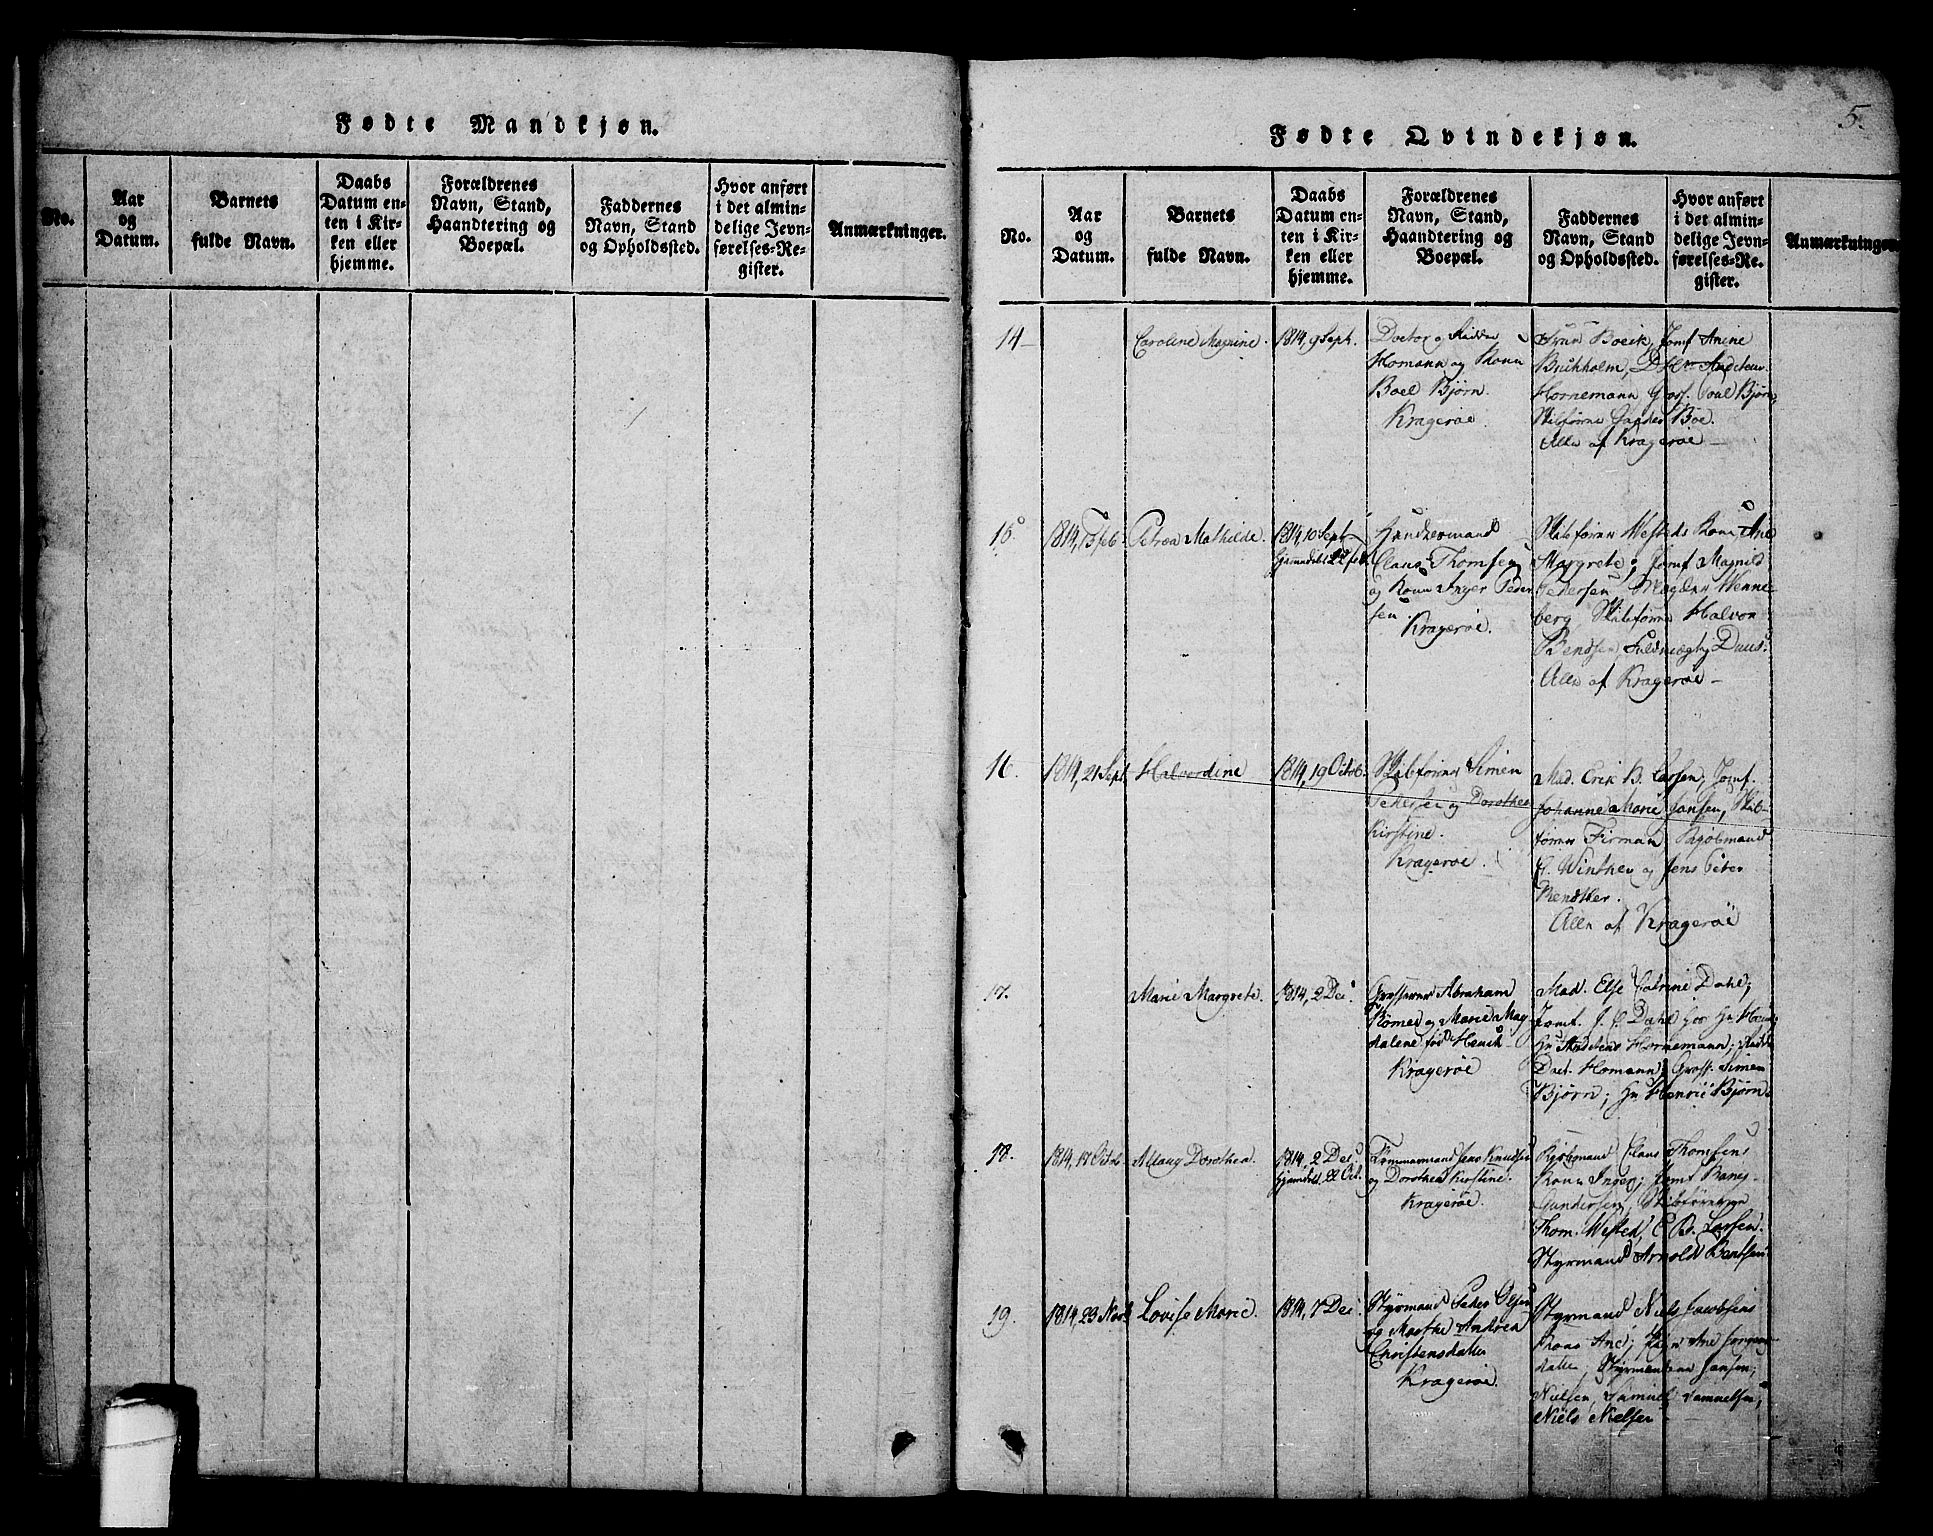 Fødte Mandkjøn.
No.
Aar
og
Datum.
Barnets
fulde Navn.
Daabs
Datum en-
ten i Kir-
ken eller
hjemme.
Forældrenes
Navn, Stand,
Haandtering og
Boepæl.
Faddernes
Navn, Stand
og Opholdssted.
Hvor anført
i det almin-
delige Jevn-
førelses-Re-
gister.
Anmærkninger.
5.
Fødte Qvindekjøn.
No.
Aar
og
Datum.
Barnets
fulde Navn.
Daabs
Datum en-
ten i Kir-
ken eller
hjemme.
Forældrenes
Navn, Stand,
Haandtering og
Boepæl.
Faddernes
Navn, Stand
og Opholdssted.
Hvor anført
i det almin-
delige Jevn-
førelses-Re-
gister.
Anmærkninger.
14
Caroline Magrine.
1814, 9 Sept.
Doctor og Ridder
Homann og Kone
Boel Bjørn.
Kragerøe.
Frue Boeck, Jomf Anine
Buchholm,
Hornemann Gros. Poul Bjørn,
Boe.
Alle af Kragerøe
15
1814, Feb
Petrea Mathilde.
1814, 10 Sept
hjemdøbt 22 feb.
Claus Thomsen
og Kone Inger Peder
sen.
Kragerøe.
Skibsfører Westeds Kone Ane
Margrete; Jomf Magnild
Pedersen Wenne
berg Skibsfører Halvor
Bendsen, Fuldmægtig Duus.
Alle af Kragerøe
16.
1814, 21 Sept
Halvordine
1814, 19 Octob.
Skibsfører Simen
Pedersen og Dorothea
Kirstine.
Kragerøe.
Mad. Erik B. Larsen, Jomf.
Johanne Marie Jansen, Skib-
fører Firman Kjøbmand
C. Winther og Jens Peter
Bendtker.
Alle af Kragerøe
17.
Marie Margrete.
1814, 2 Dec.
Grosserer Abraham
Rømer og Marie Mag
dalene fød Heuch
Kragerøe
Mad. Else Catrine Dahl,
Jomf. J. C. Dahl hos Hr Heuch
Hornemann; Ridder
Doct. Homann, Gross. Simen
Bjørn; Hr Henric Bjørn.
18.
1814, 17 Octob
Allaug Dorothea.
1814, 2 Dec.
hjemdøbt 22 Oct.
Tømmermand Jens Knudsen
og Dorothea Kirstine.
Kragerøe.
Kjøbmand Claus Thomsens
Kone Inger; Jomf
Gundersen, Skibsførerne
Thom. Wested, E. B. Larsen.
Styrmand Arnold Bentsen.
19.
1814, 23 Novb
Lovise Marie.
1814, 7 Dec.
Styrmand Peder Olsen
og Marthe Andrea
Christensdatter
Kragerøe.
Styrmand Niels Jacobsens
Kone Ane; Ane Jørgens
datter, Styrmændene Jansen,
Nielsen, Samuel Samuelsen,
Niels Nielsen